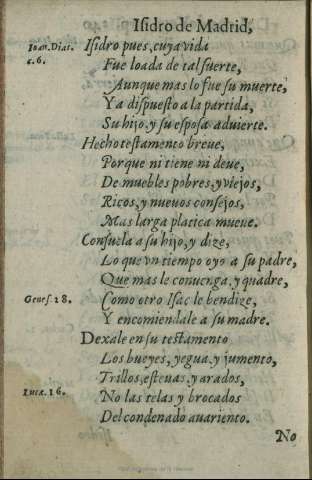 Isidro de Madrid,
Ioan. Diac. Isidro pues, cuya vida
c.6. Fue loada de tal suerte,
Aunque mas lo fue su muerte,
Ya dispuesto a la partida,
Su hijo, y su esposa aduierte.
Hecho testamento breue,
Porque ni tiene ni deue,
De muebles pobres, y viejos,
Ricos, y nueuos consejos,
Mas larga platica mueue.
Consuela a su hijo, y dize,
Lo que vn tiempo oyo a su padre,
Que mas le conuenga, y quadre,
Genes. 28. Como otro Isac le bendize,
Y encomiendale a su madre.
Dexale en su testamento
Los bueyes, yegua, y jumento,
Trillos, esteuas, y arados,
Lucæ. 16. No las telas y brocados
Del condenado auariento.
No